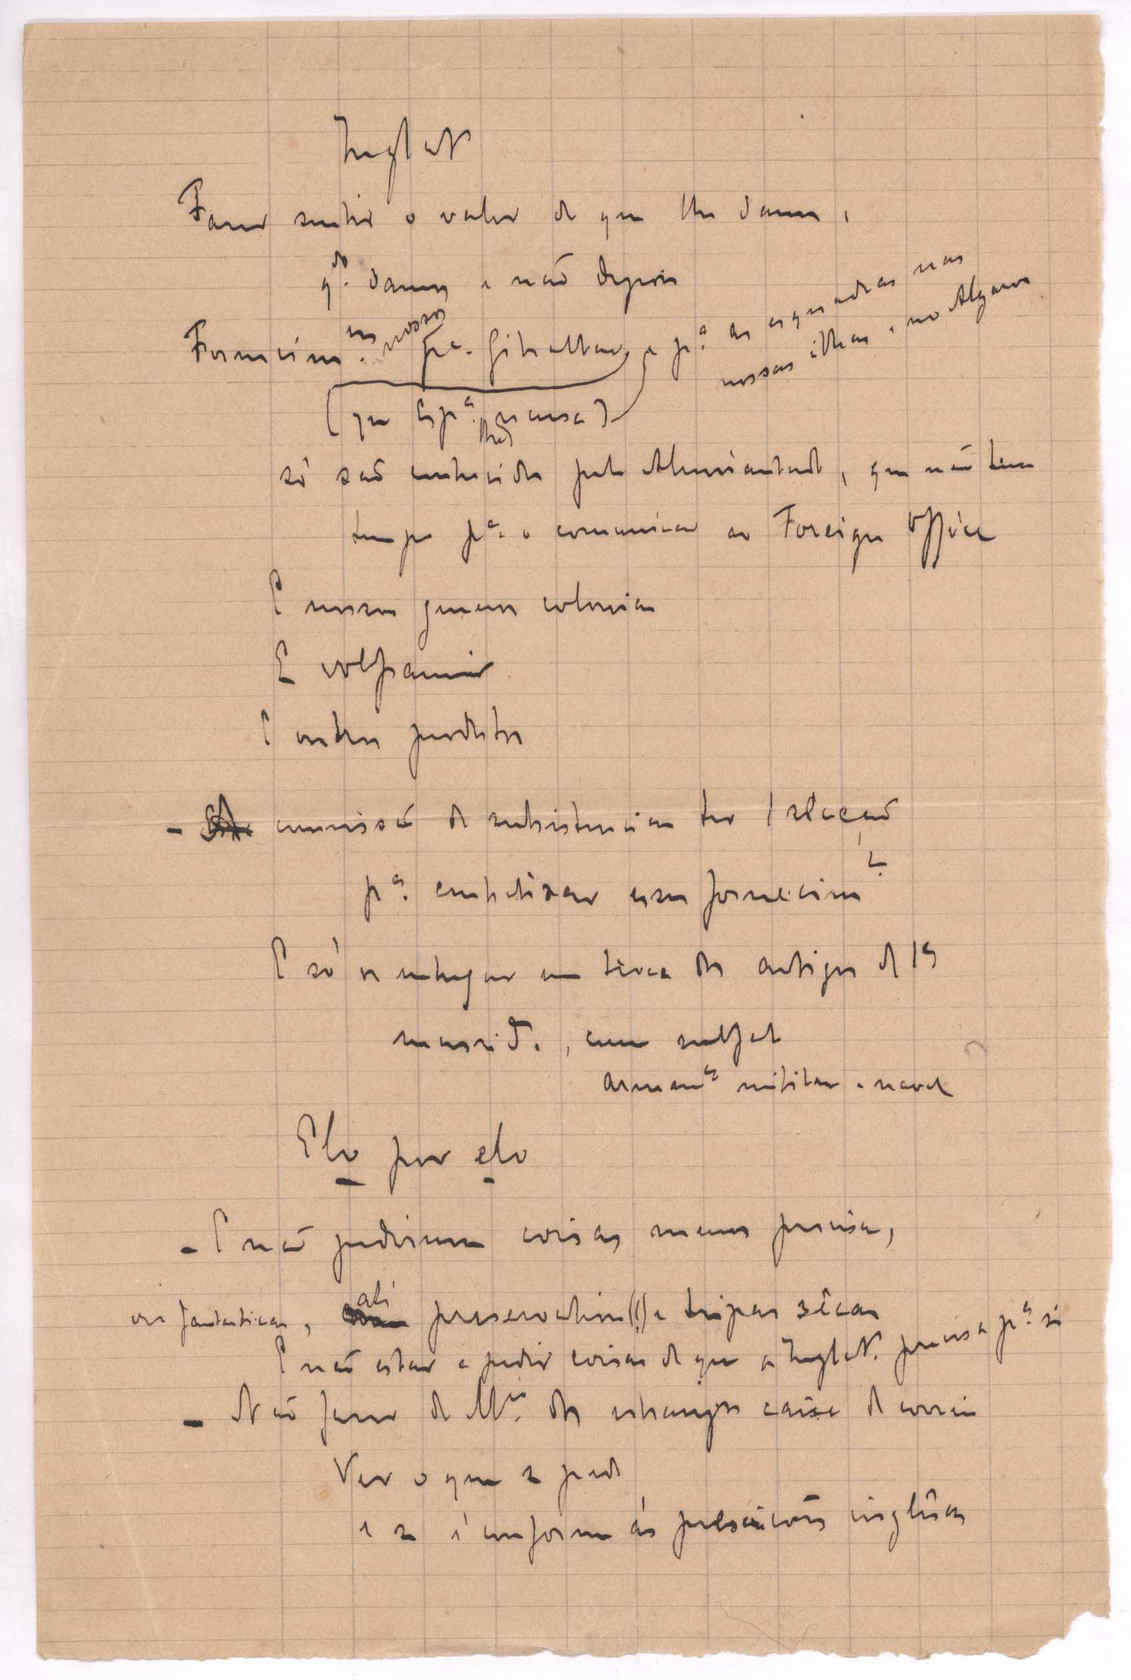 Inglat
Fazer sentir o valor do que lhe damos,
qdo. damos e não depois
Fornecim. os nossos pa. Gibraltar, e pa. as esquadras nas
nossas ilhas e no Algarve
(que Espa. recusa)
só são conhecidos pelo Almirantado, que não tem
tempo pa. o comunicar ao Foreign Office
E nossos generos coloniais
E volframio
E outros productos
- comissão de subsistencias ter 1 relação
pa. enfatizar esses fornecimts.
E só os entregar em troca dos artigos de 1a
necesside., como sulfato
armamto militar e naval
Elo por elo
- E não pedirmos coisas menos precisas,
ou fantasticas, ali preservativos (!) e tripas sêcas
E não estar a pedir coisas de que a Inglat. precisa pa. si
- Não fazer do Mº. dos estrangros caixa do correio
Ver o que se pede
e se é conforme ás prescrições inglêsas